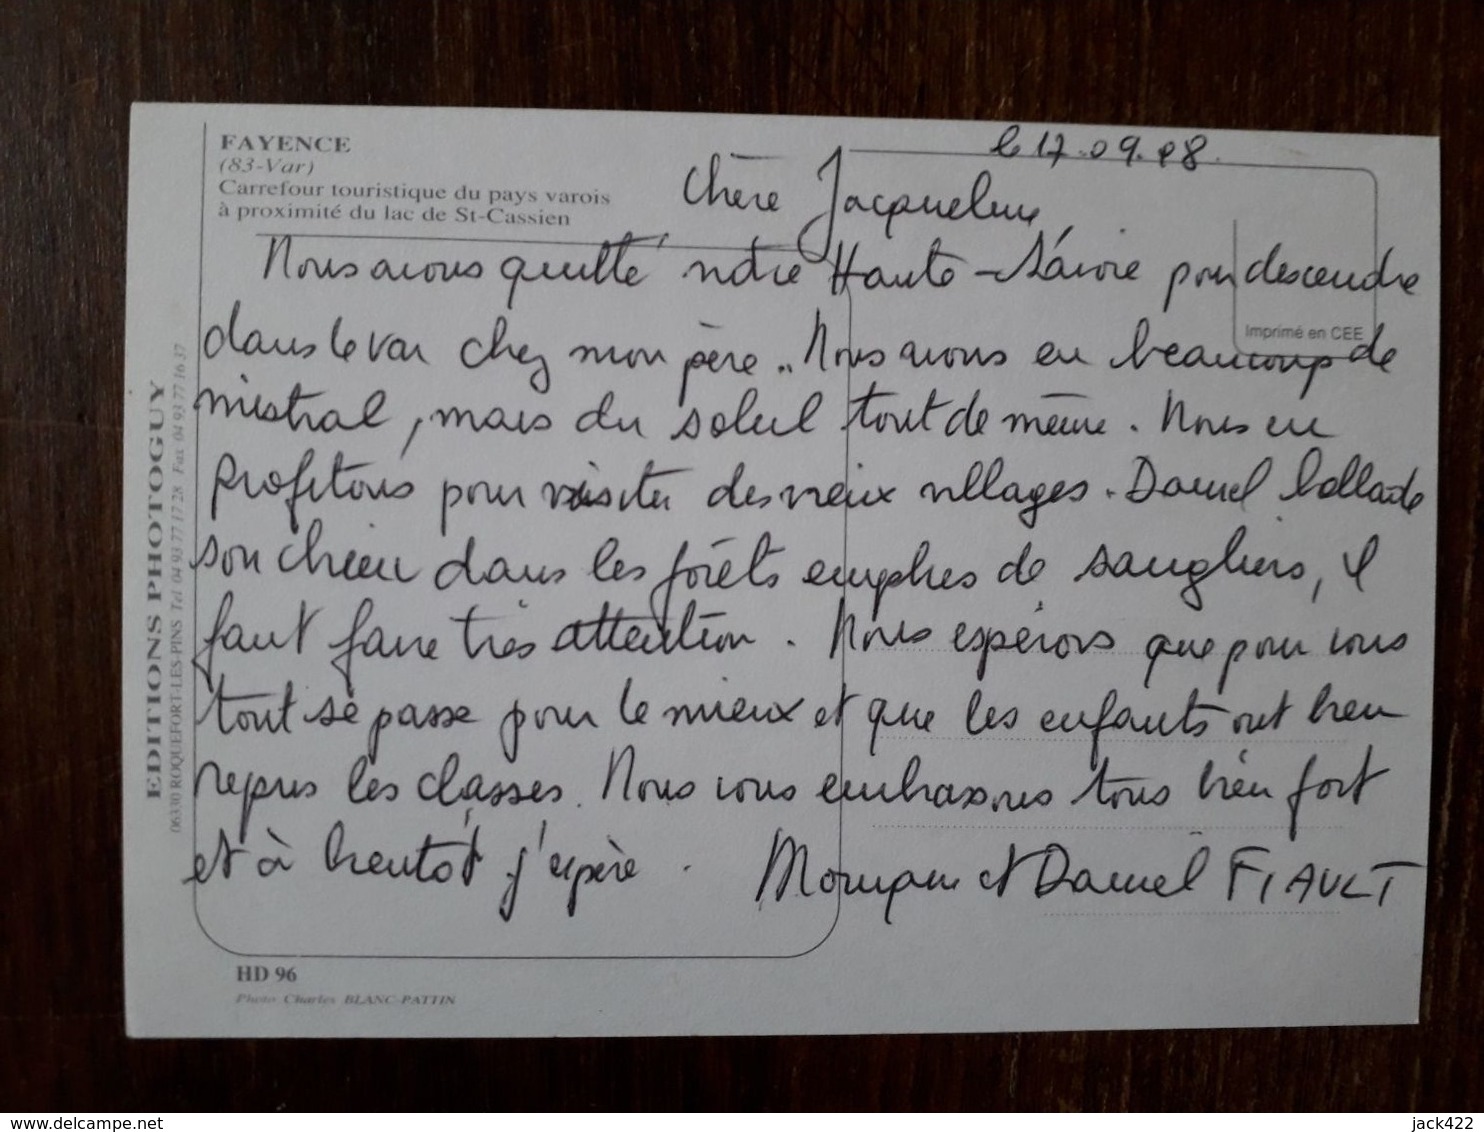 FAYENCE
(83-Var)
Carrefour touristique du pays varois
à proximité du lac de St-Cassien
le 17.09.98.
Chère Jacqueline,
Nous avons quitté notre Haute-Savoie pour descendre
dans le var chez mon père.. Nous avons eu beaucoup de
mistral, mais du soleil tout de même. Nous en
profitons pour visiter des vieux villages. Daniel ballade
son chien dans les forêts emplies de sangliers, il
faut faire très attention. Nous espérons que pour vous
tout se passe pour le mieux et que les enfants ont bien
repris les classes. Nous vous embrassons tous bien fort
et à bientôt j'espère.
et Daniel FIAULT
Imprimé en CEE
EDITIONS PHOTOGUY
06330 ROQUEFORT-LES-PINS Tel 04 93 77 17 28 Fax 04 93 77 16 37
HD 96
Photo Charles BLANC-PATTIN
www.delcampe.net
jack422